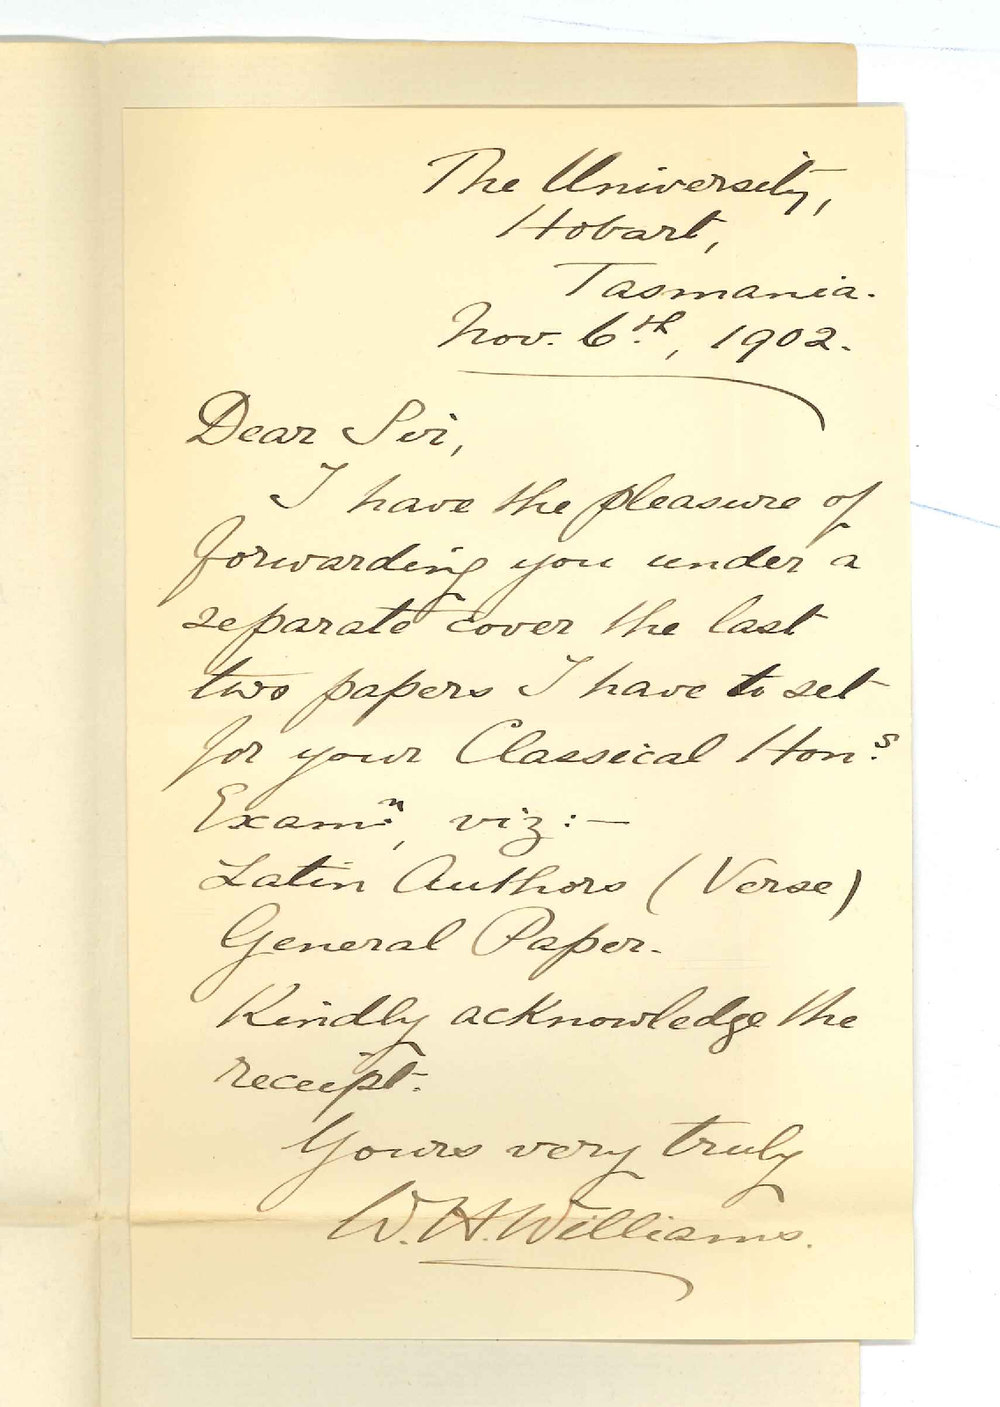 The University,
Hobart,
Tasmania.
Nov. 6th, 1902.
Dear Sir,
I have the pleasure of
forwarding you under a
separate cover the last
two papers I have to set
for your Classical Hon.s
Exam.n, viz:—
Latin Authors (Verse)
General Paper.
Kindly acknowledge the
receipt.
Yours very truly
W. H. Williams.